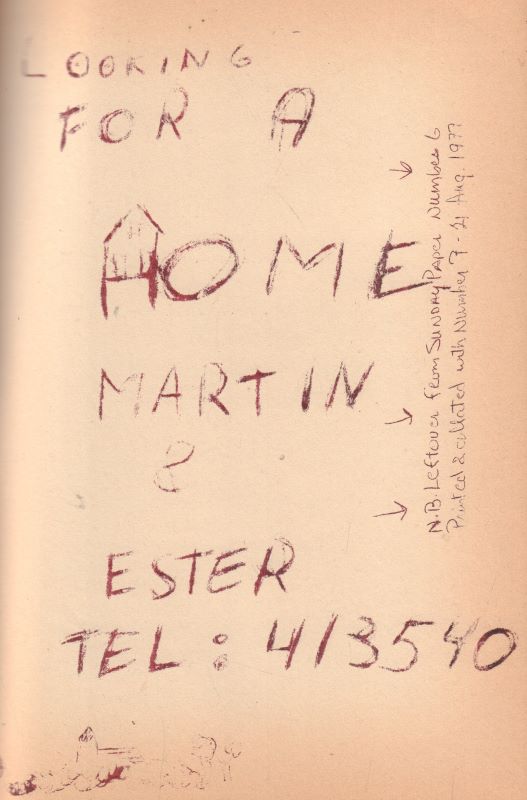 LOOKING
FOR A
HOME
MARTIN
&
ESTER
TEL: 413540
N.B. Leftover from SUNDAY Paper Number 6
Printed & collated with Number 7 - 21 Aug. 1977